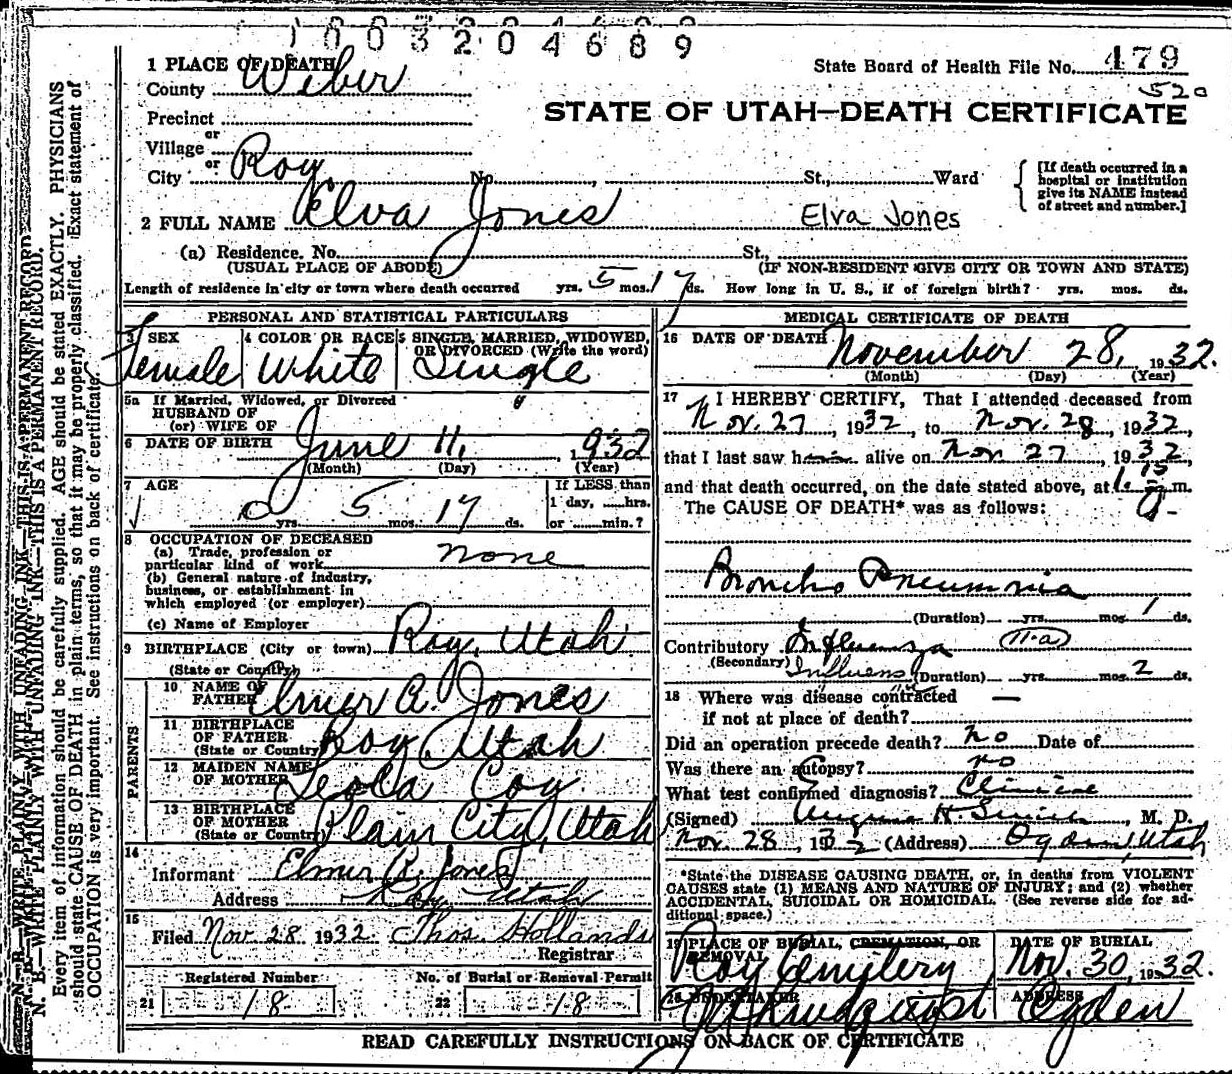 1003204689
1 PLACE OF DEATH
County Weber
State Board of Health File No. 479
520
STATE OF UTAH—DEATH CERTIFICATE
Precinct
or
Village
or
City Roy No. , St., Ward
[If death occurred in a
hospital or institution
give its NAME instead
of street and number.]
2 FULL NAME Elva Jones Elva Jones
(a) Residence. No. St.,
(USUAL PLACE OF ABODE) (IF NON-RESIDENT GIVE CITY OR TOWN AND STATE)
Length of residence in city or town where death occurred yrs. 5 mos. 17 ds. How long in U. S., if of foreign birth? yrs. mos. ds.
PERSONAL AND STATISTICAL PARTICULARS
3 SEX
Female
4 COLOR OR RACE
White
5 SINGLE, MARRIED, WIDOWED,
OR DIVORCED (Write the word)
Single
5a If Married, Widowed, or Divorced
HUSBAND OF
(or) WIFE OF
6 DATE OF BIRTH June 11, 1932
(Month) (Day) (Year)
7 AGE
0 yrs. 5 mos. 17 ds.
If LESS than
1 day, hrs.
or min.?
8 OCCUPATION OF DECEASED
(a) Trade, profession or
particular kind of work none
(b) General nature of industry,
business, or establishment in
which employed (or employer)
(c) Name of Employer
9 BIRTHPLACE (City or town) Roy, Utah
(State or Country)
PARENTS
10 NAME OF
FATHER Elmer A. Jones
11 BIRTHPLACE
OF FATHER
(State or Country) Roy, Utah
12 MAIDEN NAME
OF MOTHER Leola Coy
13 BIRTHPLACE
OF MOTHER
(State or Country) Plain City, Utah
14
Informant Elmer A. Jones
Address Roy Utah
15
Filed Nov. 28 1932 Thos. Hollands
Registrar
Registered Number
21 18
No. of Burial or Removal Permit
22 18
MEDICAL CERTIFICATE OF DEATH
16 DATE OF DEATH November 28, 1932.
(Month) (Day) (Year)
17 I HEREBY CERTIFY, That I attended deceased from
Nov. 27, 1932, to Nov. 28, 1932,
that I last saw h alive on Nov 27, 1932,
and that death occurred, on the date stated above, at 1.15 m.
The CAUSE OF DEATH* was as follows: a-
Broncho Pneumonia
(Duration) yrs. mos. 1 ds.
Contributory Influenza 11-a
(Secondary) Influenza (Duration) yrs. mos. 2 ds.
18 Where was disease contracted —
if not at place of death?
Did an operation precede death? no Date of
Was there an autopsy? no
What test confirmed diagnosis? Clinical
(Signed) H. Smith, M. D.
Nov. 28, 1932 (Address) Ogden, Utah
*State the DISEASE CAUSING DEATH, or, in deaths from VIOLENT
CAUSES state (1) MEANS AND NATURE OF INJURY; and (2) whether
ACCIDENTAL, SUICIDAL OR HOMICIDAL. (See reverse side for ad-
ditional space.)
19 PLACE OF BURIAL, CREMATION, OR
REMOVAL
Roy Cemetery
DATE OF BURIAL
Nov. 30, 1932.
20 UNDERTAKER
ADDRESS
Ogden
READ CAREFULLY INSTRUCTIONS ON BACK OF CERTIFICATE
N. B.—WRITE PLAINLY WITH UNFADING INK—THIS IS A PERMANENT RECORD.
Every item of information should be carefully supplied. AGE should be stated EXACTLY. PHYSICIANS
should state CAUSE OF DEATH in plain terms, so that it may be properly classified. Exact statement of
OCCUPATION is very important. See instructions on back of certificate.